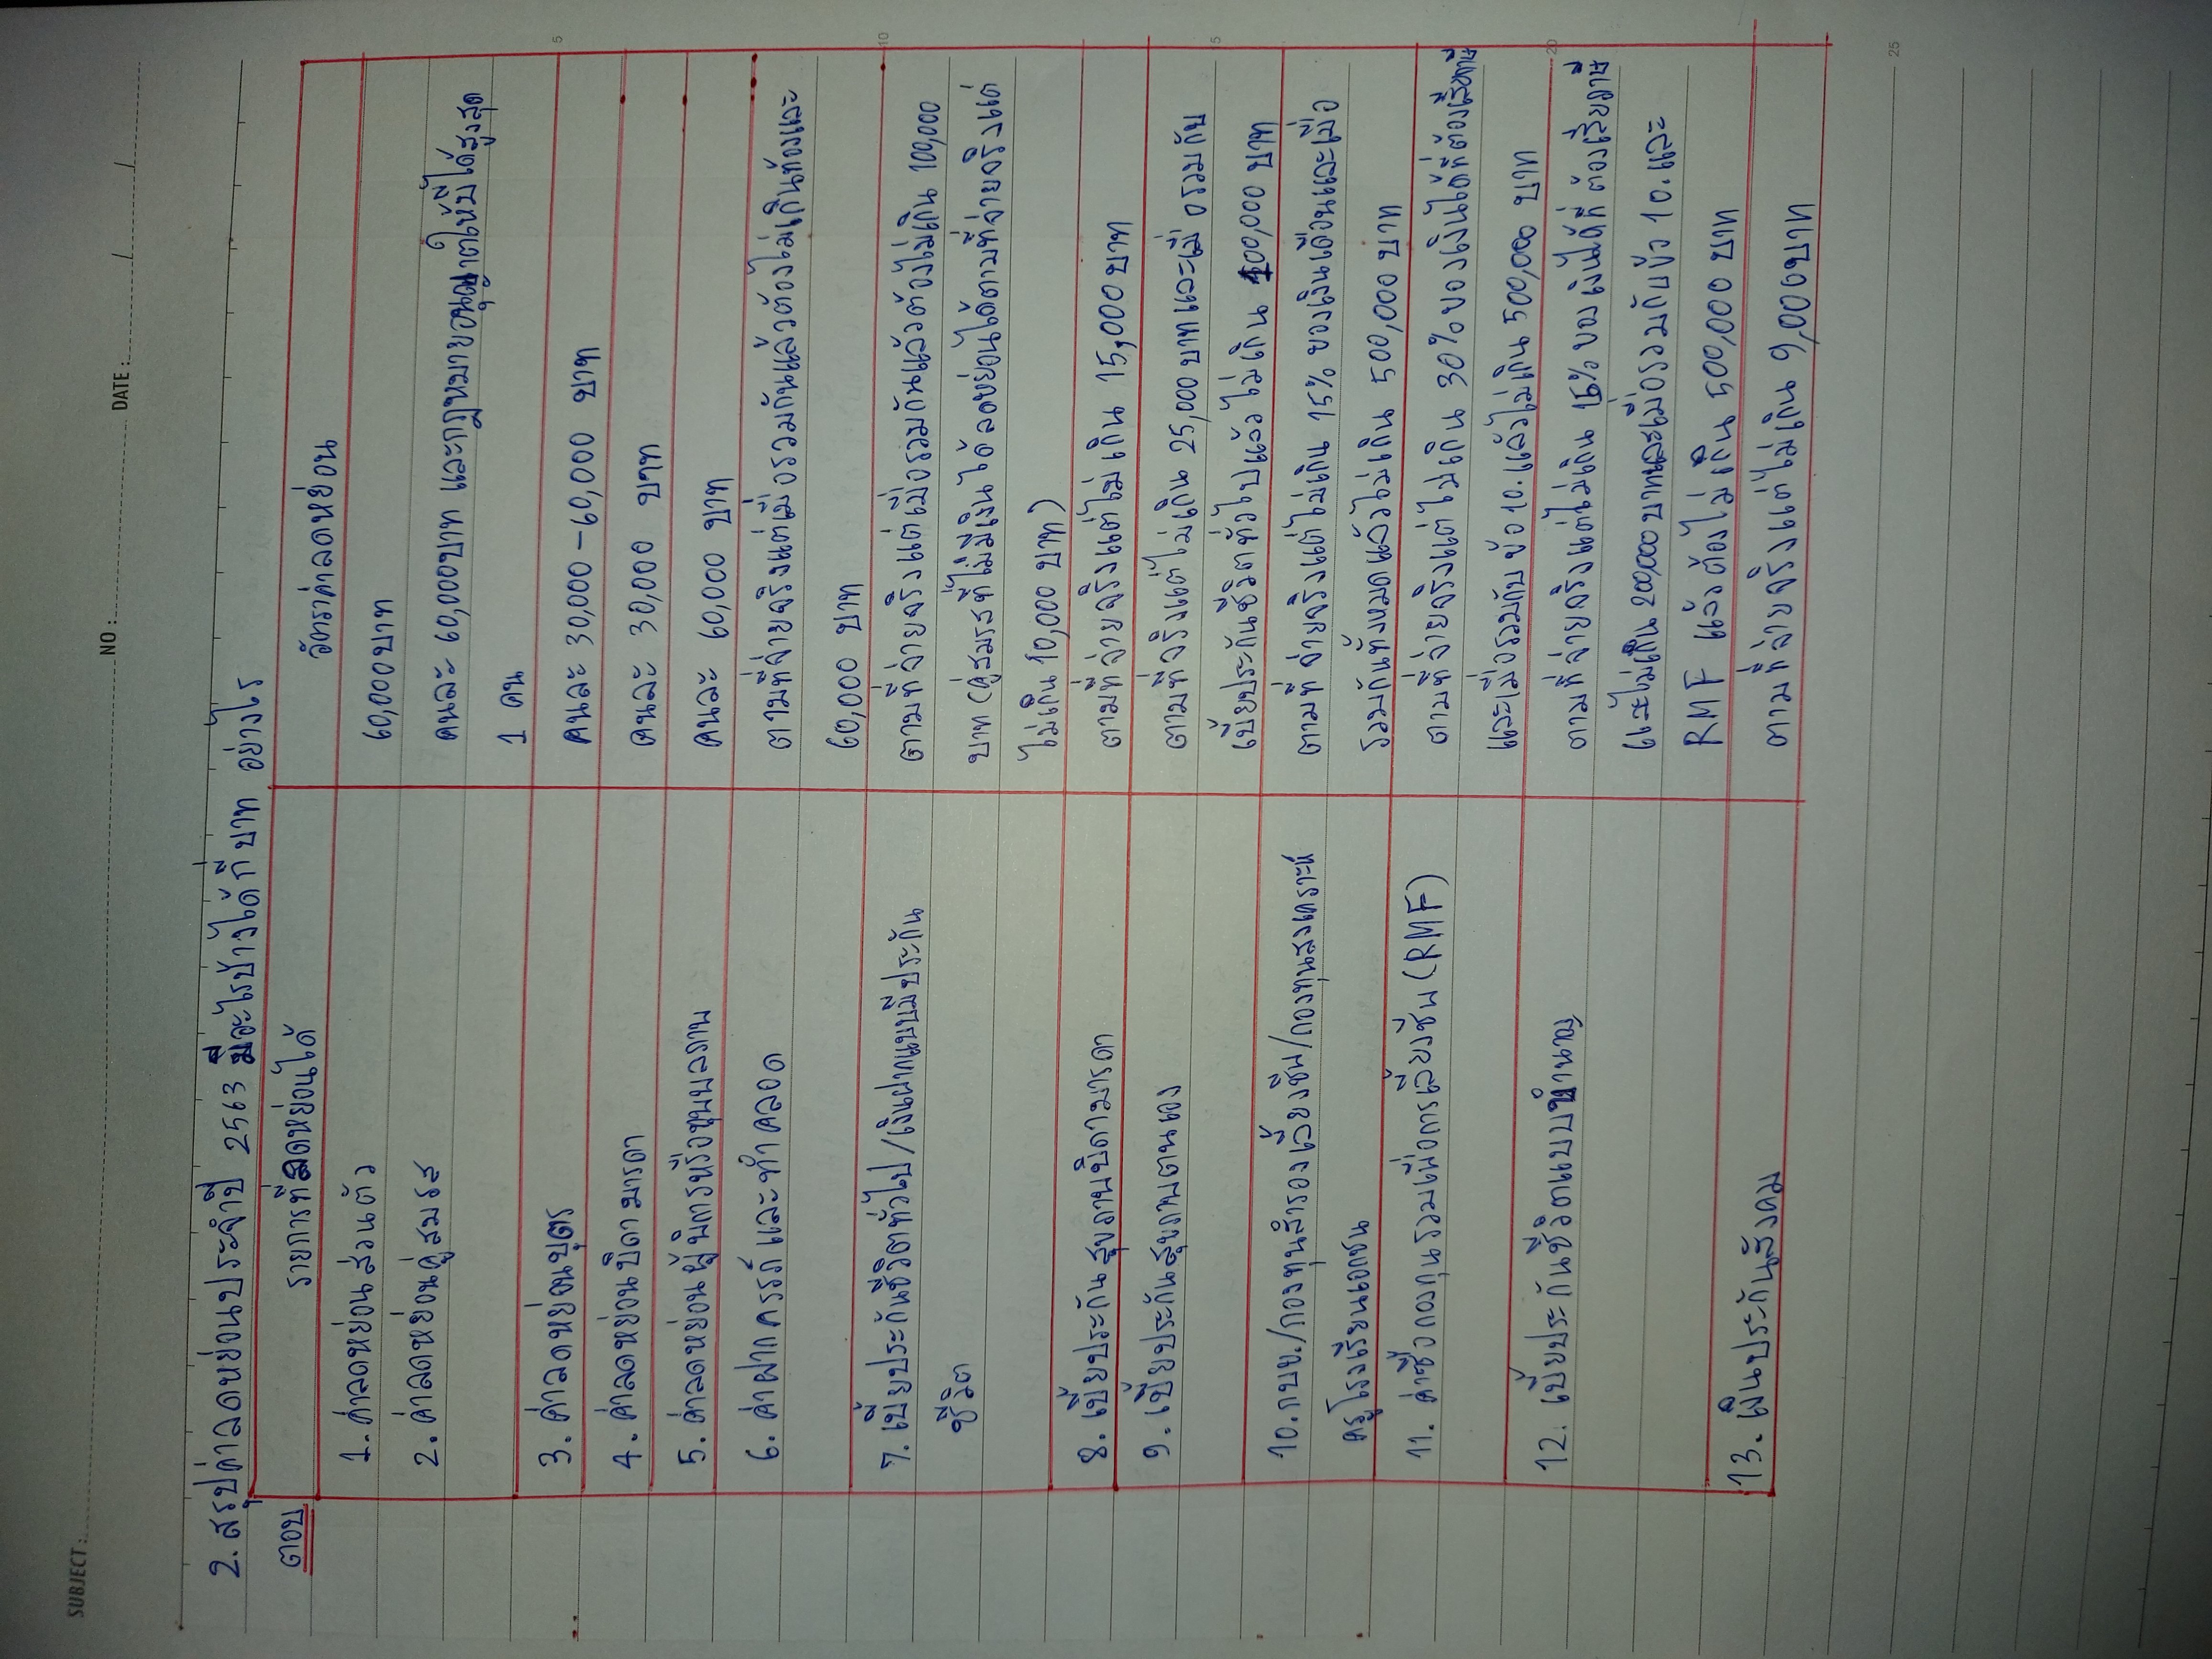 SUBJECT : NO : DATE : / /
2. สรุปค่าลดหย่อนประจำปี 2563 มีอะไรบ้างได้กี่บาท อย่างไร
ตอบ รายการที่ลดหย่อนได้ อัตราค่าลดหย่อน
1. ค่าลดหย่อนส่วนตัว 60,000 บาท
2. ค่าลดหย่อนคู่สมรส คนละ 60,000 บาท และกฎหมายอนุญาตให้มีได้สูงสุด
1 คน
5
3. ค่าลดหย่อนบุตร คนละ 30,000 – 60,000 บาท
4. ค่าลดหย่อนบิดามารดา คนละ 30,000 บาท
5. ค่าลดหย่อนผู้พิการหรือทุพพลภาพ คนละ 60,000 บาท
6. ค่าฝากครรภ์และทำคลอด ตามที่จ่ายจริงแต่เมื่อรวมกันแล้วต้องไม่เกินท้องและ
60,000 บาท
10
7. เบี้ยประกันชีวิตทั่วไป/เงินฝากแบบมีประกัน ตามที่จ่ายจริงแต่เมื่อรวมกันแล้วต้องไม่เกิน 100,000
ชีวิต บาท (คู่สมรสที่ไม่มีเงินได้ ลดหย่อนได้ตามที่จ่ายจริงแต่
ไม่เกิน 10,000 บาท)
8. เบี้ยประกันสุขภาพบิดามารดา ตามที่จ่ายจริงแต่ไม่เกิน 15,000 บาท
9. เบี้ยประกันสุขภาพตนเอง ตามที่จริงแต่ไม่เกิน 25,000 บาทและเมื่อรวมกับ
5
เบี้ยประกันชีวิตทั่วไปแล้วไม่เกิน 100,000 บาท
10. กบข./กองทุนสำรองเลี้ยงชีพ/กองทุนสงเคราะห์ ตามที่จ่ายจริงแต่ไม่เกิน 15% ของเงินเดือนและเมื่อ
ครูโรงเรียนเอกชน รวมกันทั้งหมดแล้วไม่เกิน 500,000 บาท
11. ค่าซื้อกองทุนรวมเพื่อการเลี้ยงชีพ (RMF) ตามที่จ่ายจริงแต่ไม่เกิน 30% ของเงินได้ที่ต้องเสียภาษี
และเมื่อรวมกับ ข้อ 10. แล้วไม่เกิน 500,000 บาท
20
12. เบี้ยประกันชีวิตแบบบำนาญ ตามที่จ่ายจริงแต่ไม่เกิน 15% ของเงินได้ที่ต้องเสียภาษี
และไม่เกิน 200,000 บาทและเมื่อรวมกับข้อ 10. และ
RMF แล้วต้องไม่เกิน 500,000 บาท
13. เงินประกันสังคม ตามที่จ่ายจริงแต่ไม่เกิน 9,000 บาท
25